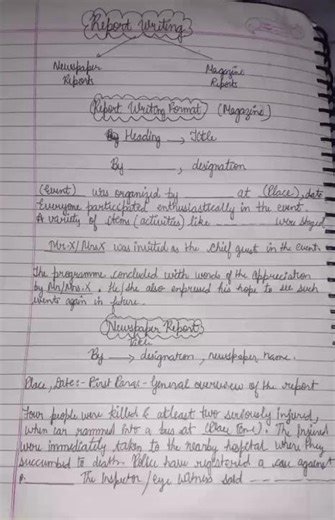 Report Writing
Newspaper Reports
Magazine Reports
Report Writing Format (Magazine)
Heading → Title
By ______, designation
(Event) was organized by ______ at (Place), date
Everyone participated enthusiastically in the event.
A variety of items (activities) like ______ were staged
Mr. X/Mrs X was invited as the chief guest in the event
The programme concluded with words of the appreciation
by Mr/Mrs. X. He/she also expressed his hope to see such
events again in future.
Newspaper Report
Title
By → designation, newspaper name.
Place, Date:- First Para:- General overview of the report
Four people were killed & atleast two seriously injured,
when car rammed into a bus at (Place, time). The injured
were immediately taken to the nearby hospital where they
succumbed to death. Police have registered a case against
______ The Inspector / eye witness said ______